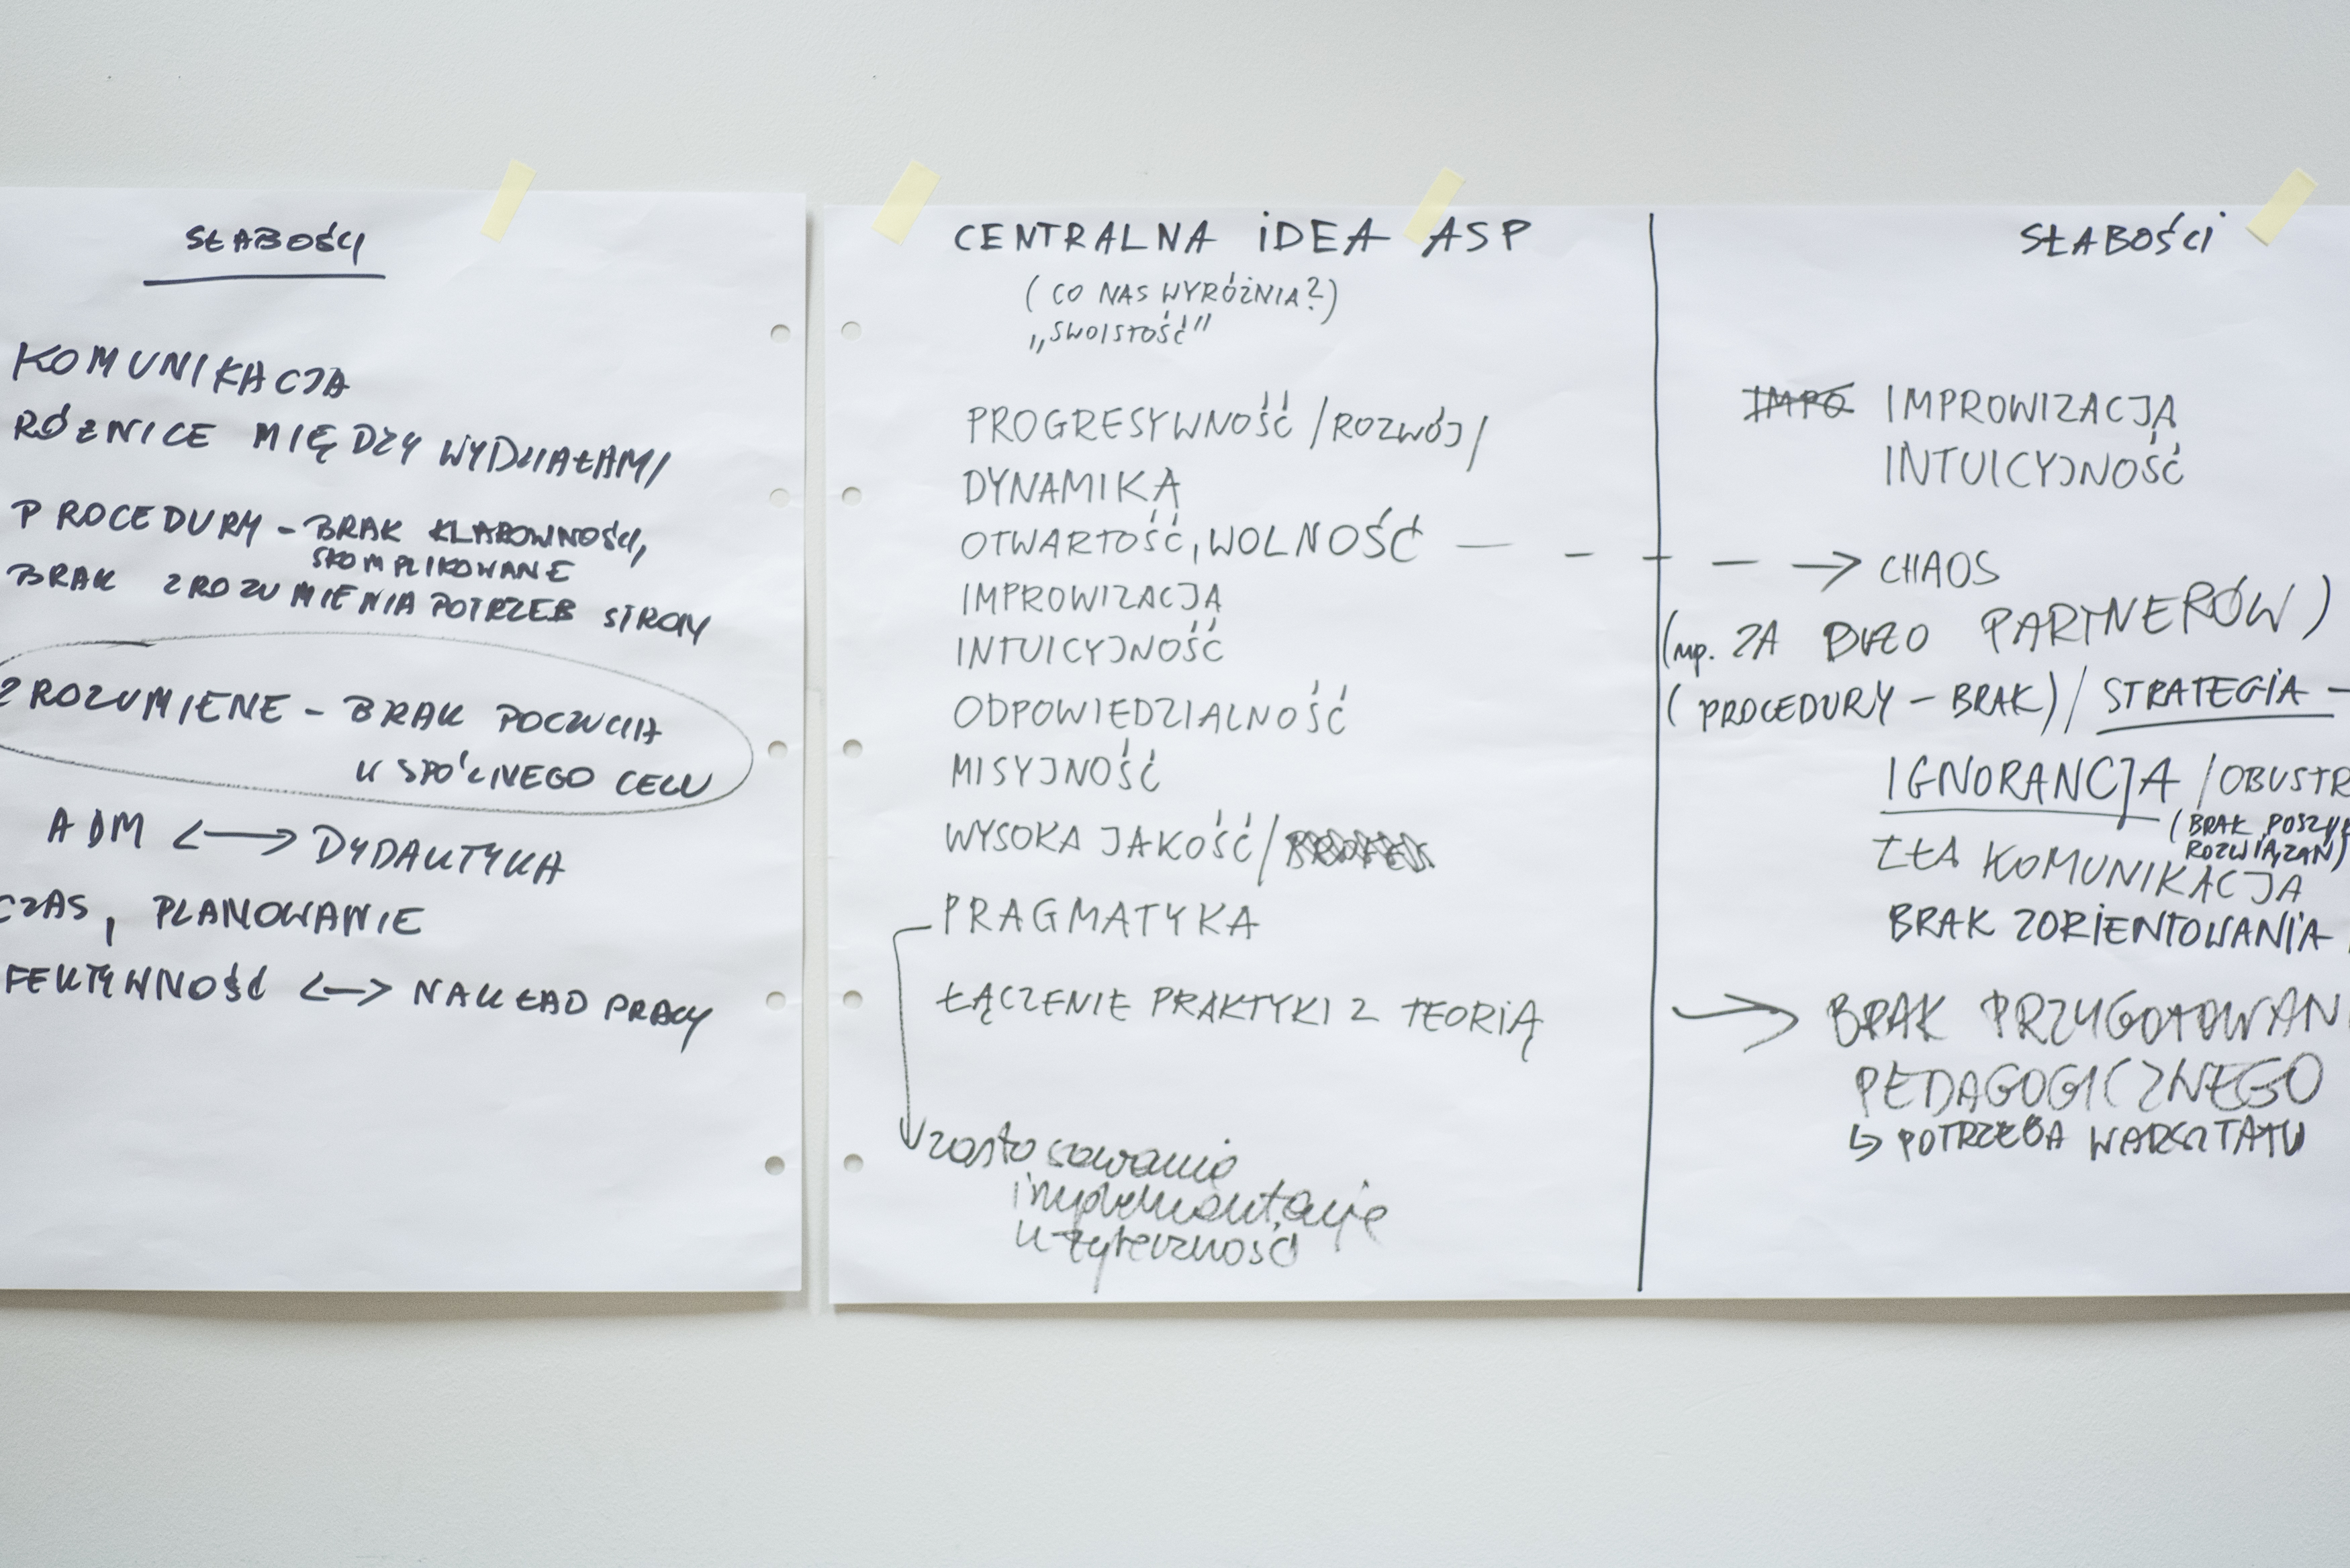 SŁABOŚCI
KOMUNIKACJA
RÓŻNICE MIĘDZY WYDZIAŁAMI
PROCEDURY – BRAK KLAROWNOŚCI,
SKOMPLIKOWANE
BRAK ZROZUMIENIA POTRZEB STRONY
ZROZUMIENE – BRAK POCZUCIA
WSPÓLNEGO CELU
ADM <—> DYDAKTYKA
CZAS, PLANOWANIE
FEKTYWNOŚĆ <—> NAKŁAD PRACY
CENTRALNA IDEA ASP
(CO NAS WYRÓŻNIA?)
„SWOISTOŚĆ"
PROGRESYWNOŚĆ /ROZWÓJ/
DYNAMIKA
OTWARTOŚĆ, WOLNOŚĆ — – – – →
IMPROWIZACJA
INTUICYJNOŚĆ
ODPOWIEDZIALNOŚĆ
MISYJNOŚĆ
WYSOKA JAKOŚĆ/
PRAGMATYKA
ŁĄCZENIE PRAKTYKI Z TEORIĄ
zastosowanie
implementacje
użyteczność
SŁABOŚCI
IMPO IMPROWIZACJA
INTUICYJNOŚĆ
CHAOS
(np. ZA DUŻO PARTNERÓW)
(PROCEDURY – BRAK) / STRATEGIA –
IGNORANCJA /OBUSTR
(BRAK POSZUK
ROZWIĄZAŃ)
ZŁA KOMUNIKACJA
BRAK ZORIENTOWANIA
→ BRAK PRZYGOTOWAN
PEDAGOGICZNEGO
↳ POTRZEBA WARSZTATU